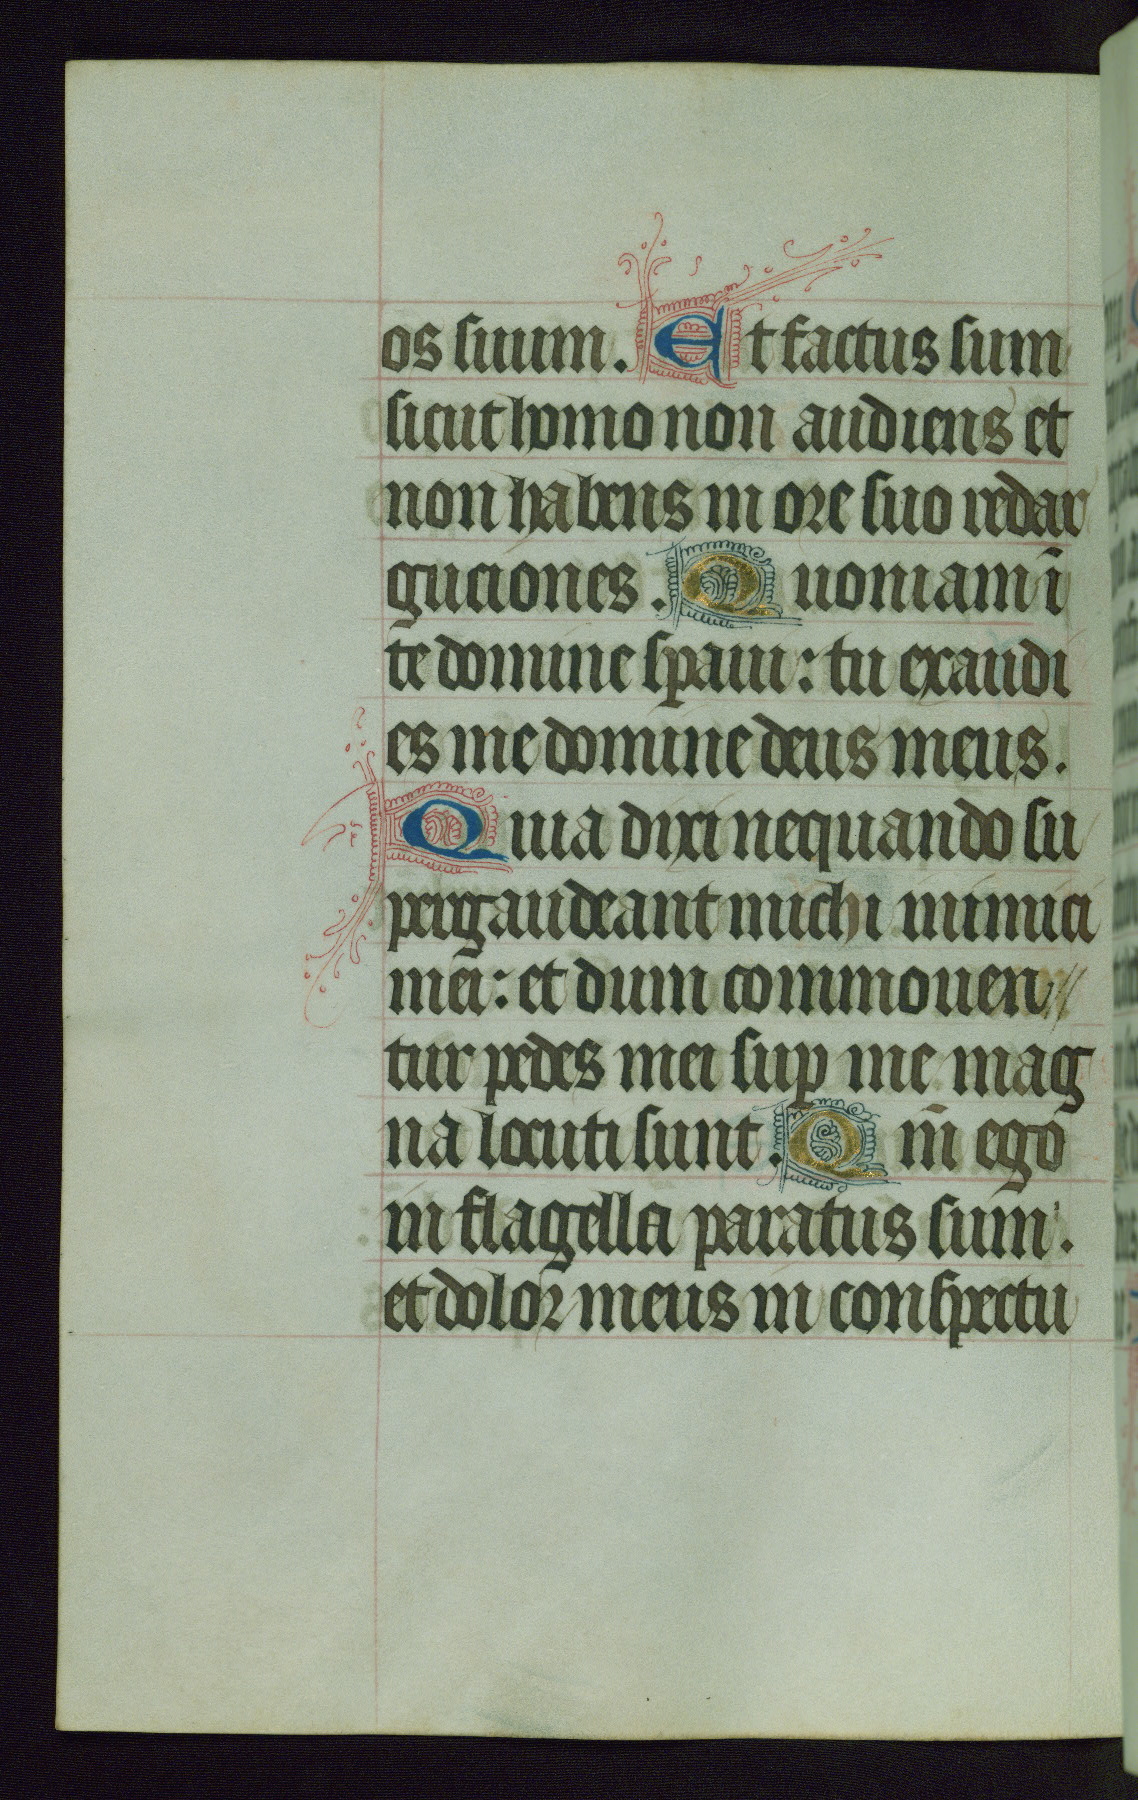 os suum. Et factus sum
sicut homo non audiens et
non habens in ore suo redar
guciones. Quoniam ī
te domine sꝑaui: tu exaudi
es me domine deus meus.
Quia dixi nequando su
pergaudeant michi inimici
mei: et dum commouen
tur pedes mei suꝑ me mag
na locuti sunt. Qm̄ ego
in flagella paratus sum:
et dolor meus in conspectu